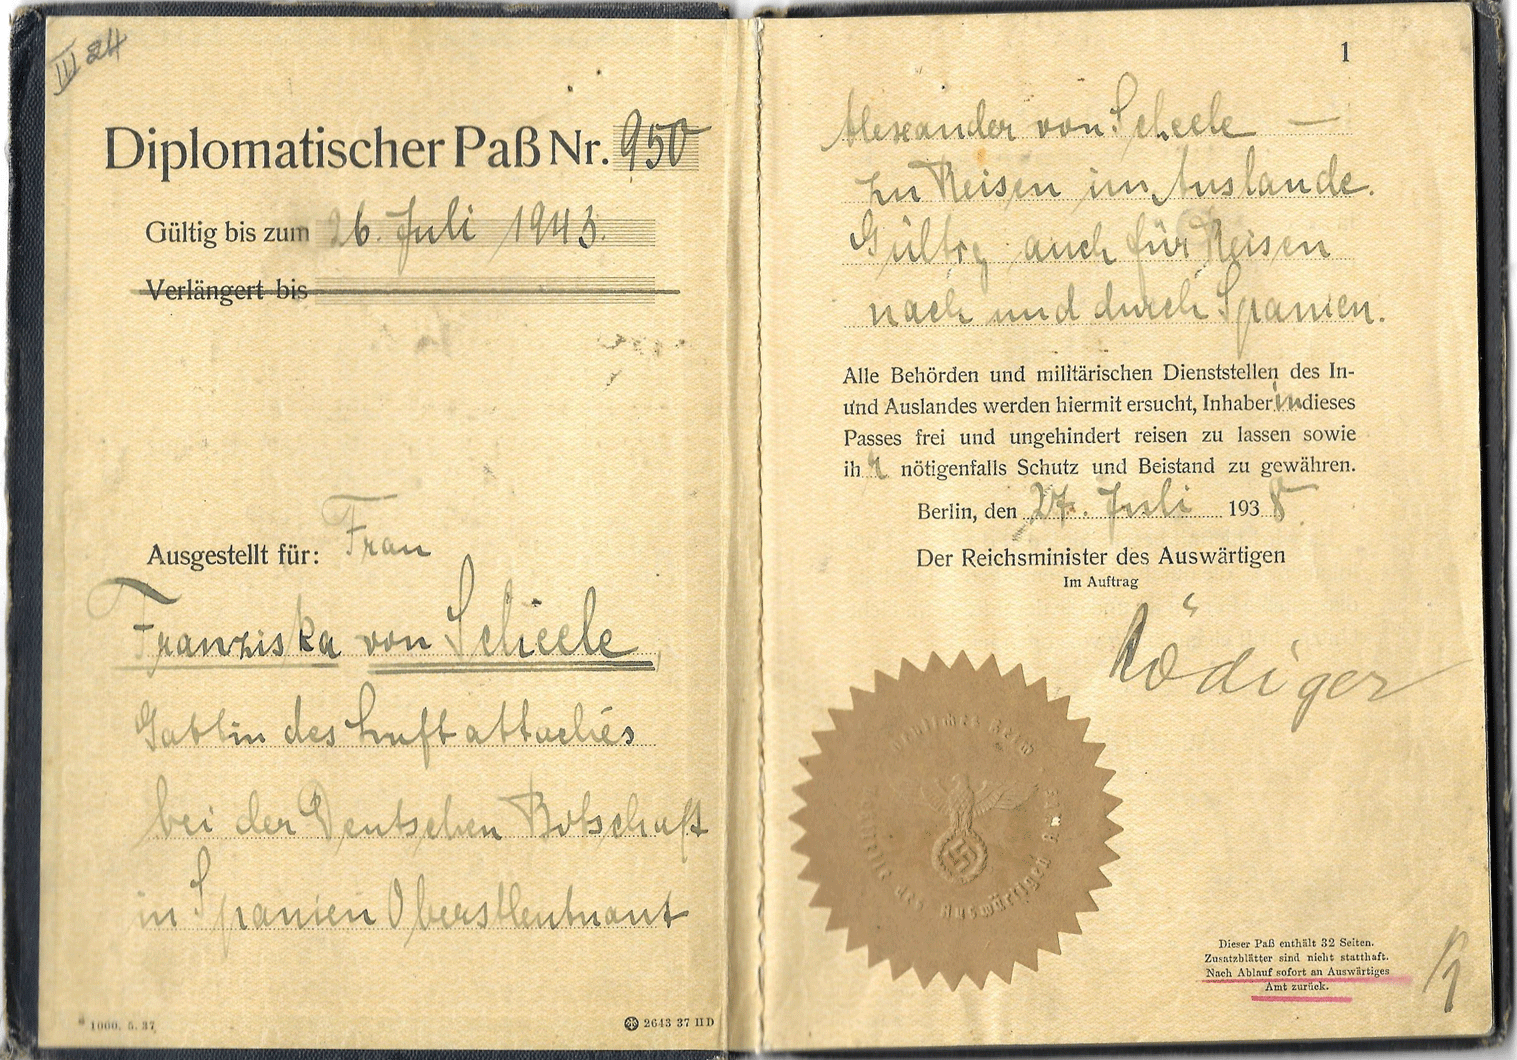 III 24
Diplomatischer Paß Nr. 950
Gültig bis zum 26. Juli 1943.
Verlängert bis
Ausgestellt für: Frau
Franziska von Scheele,
Gattin des Luftattachés
bei der Deutschen Botschaft
in Spanien Oberstleutnant
* 1000. 5. 37
2643 37 II D
1
Alexander von Scheele —
zu Reisen im Auslande.
Gültig auch für Reisen
nach und durch Spanien.
Alle Behörden und militärischen Dienststellen des In-
und Auslandes werden hiermit ersucht, Inhaberin dieses
Passes frei und ungehindert reisen zu lassen sowie
ihr nötigenfalls Schutz und Beistand zu gewähren.
Berlin, den 27. Juli 1938
Der Reichsminister des Auswärtigen
Im Auftrag
Rödiger
Deutsches Reich
des Auswärtigen Amts
Dieser Paß enthält 32 Seiten.
Zusatzblätter sind nicht statthaft.
Nach Ablauf sofort an Auswärtiges
Amt zurück.